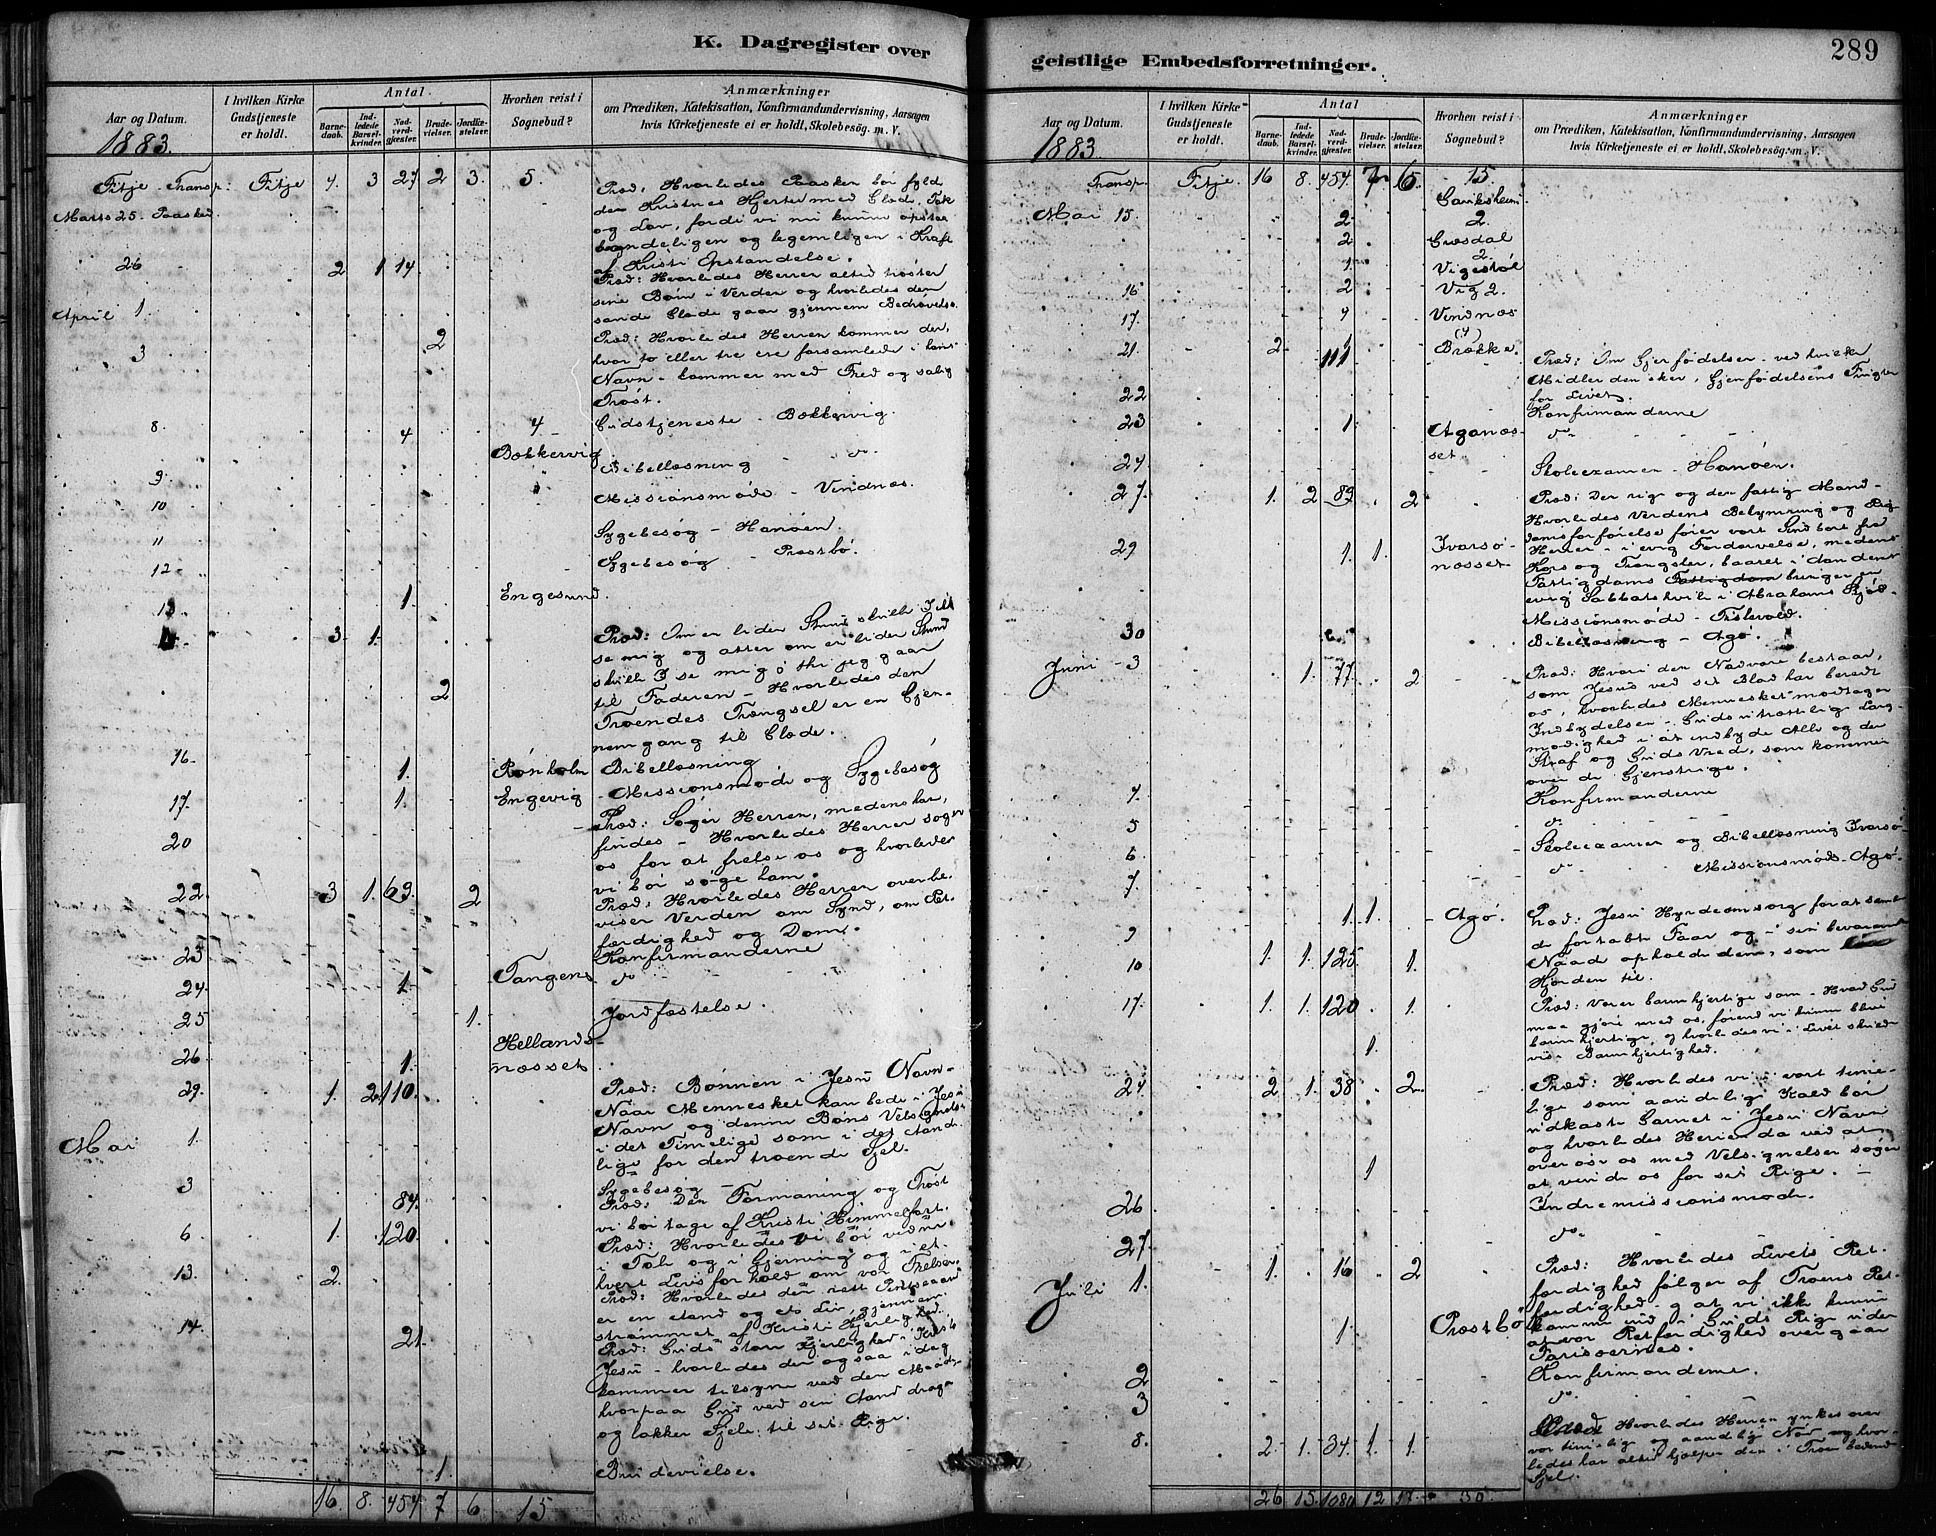 K. Dagregister over
Aar og Datum.
I hvilken Kirke Gudstjeneste er holdt.
Antal.
Barnedaab.
Indledede Barselkvinder.
Nadverdgjester.
Brudevielser.
Jordfæstelser.
Hvorhen reist i Sognebud?
Anmærkninger
om Prædiken, Katekisation, Konfirmandundervisning, Aarsagen
hvis Kirketjeneste ei er holdt, Skolebesøg. m. V.
1883.
Fitje Transp: Fitje 4. 3 27 2 3. 5.
Præd: Hvorledes Paasken bør fylde
den Kristnes Hjerte med Glæde, Tak
Marts 25. Paaske
og Lov, fordi vi nu kunne opstaa
aandeligen og legemligen i Kraft
af Kristi Opstandelse.
26 2 1 14
Præd: Hvorledes Herren altid trøster
sine Børn i Verden og hvorledes den
sande Glæde gaar gjennem Bedrøvelse.
April 1.
Præd: Hvorledes Herren kommer der,
2
hvor to eller tre ere forsamlede i hans
3
Navn - kommer med Fred og salig
Trøst.
8. 4 4
Gudstjeneste - Bækkervig.
Bækkervig
9. Bibellæsning - do
10 Missionsmøde - Vindnæs.
11 Sygebesøg - Hanøen.
12 Sygebesøg - Præstbø.
13 1. Engesund.
3 1.
Præd: Om en liden Stund skulle I ikke
se mig og atter om en liden Stund
skulle I se mig; thi jeg gaar
til Faderen - Hvorledes den
2
Troendes Trængsel er en Gjen-
nemgang til Glæde.
16- 1. Rønholm Bibellæsning
17. 1. Engevig - Missionsmøde og Sygebesøg
Præd: Søger Herren, medens han
20 findes - Hvorledes Herren søger
os for at frelse os og hvorledes
vi bør søge ham.
22. 3 1. 63. 2
Præd: Hvorledes Herren overbe-
viser Verden om Synd, om Ret-
færdighed og Dom.
23 Konfirmanderne
24. 1. Tangen do
25 1. Jordfæstelse.
26 1. Hellands-
næsset
29. 1. 2 110.
Præd: Bønnen i Jesu Navn-
Naar Mennesket kan bede i Jesu
Navn og denne Bøns Velsignelse
Mai 1. i det Timelige som i det Aande-
lige for den troende Sjel.
3 Sygebesøg -
84. Præd: Den Formaning og Trøst
vi bør tage af Kristi Himmelfart.
6 1. 120. Præd: Hvorledes vi bør vidne
i Tale og i Gjerning og i et-
hvert Livsforhold om vor Frelser.
13. 2. Præd: Hvorledes den rette Pintseaand
er en Aand og et Liv, gjennem-
strømmet af Kristi Kjerlighed.
14. 21 Præd: Guds store Kjerlighed i Kristo
Jesu - hvorledes den ogsaa idag
kommer tilsyne ved den Maade,
hvorpaa Gud ved sin Aand drager
og lokker Sjele til sit Rige.
1. Brudevielse.
16. 8. 454 7 6 15
geistlige Embedsforretninger.
289
Aar og Datum.
I hvilken Kirke Gudstjeneste er holdt.
Antal
Barnedaab.
Indledede Barselkvinder.
Nadverdgjester.
Brudevielser.
Jordfæstelser.
Hvorhen reist i Sognebud?
Anmærkninger
om Prædiken, Katekisation, Konfirmandundervisning, Aarsagen
hvis Kirketjeneste ei er holdt, Skolebesøg. m. V.
1883
Transp. Fitje. 16 8. 454. 7 6. 15.
Mai 15 2 2.
2 2.
1. Vigestøl
16 2 Vig 2.
17. 4 Vindnæs
(4)
21. 2 111 Brække.
Præd: Om Gjenfødelsen - ved hvilke
Midler den sker, Gjenfødelsens Frugter
22 for Livet.
Konfirmanderne
23 1. Aganæs-
set do
24 Skoleexamen - Hanøen.
27. 1. 2 82 2
Præd: Den rige og den fattige Mand -
Hvorledes Verdens Bekymring og Rig-
doms forførelse fører vort Sind bort fra
29 1. 1. Ivarsø-
næsset
Herren - i evig Fordærvelse, medens
Kors og Trængsler, baaret i Aandens
Fattigdom bringer en
evig Sabbatshvile i Abrahams Skjød.
Missionsmøde - Fislevold.
30 Bibellæsning - Agø.
Juni - 3 1. 77. 2
Præd: Hvori den Nadvere bestaar,
som Jesus ved sit Blod har beredt
os, hvorledes Mennesket modtager
Indbydelsen - Guds utrættelige Lang-
modighed i at indbyde Alle og den
Straf og Guds Vrede, som kommer
over de Gjenstridige.
4. Konfirmanderne
5 do
6 Skoleexamen og Bibellæsning Ivarsø
7. do Missionsmøde - Agø.
9 1. 1. Agø.
Præd: Jesu Hyrdeomsorg for at samle
de fortabte Faar og i sin bevarende
10 1. 1. 125. 1.
Naad opholde dem, som
Hjorden til.
17. 1. 1. 120 1
Præd: Værer barmhjertige som - Hvad Gud
maa gjøre med os, førend vi kunne blive
barmhjertige, og hvorledes vi i Livet skulle
1. vise Barmhjertighed.
24. 2 1. 38 2
Præd: Hvorledes vi i vort time-
lige som aandelige Kald bør
udkaste Garnet i Jesu Navn
og hvorledes Herren da ved at
overøse os med Velsignelser søger
1 at vinde os for sit Rige. -
26 Indremissionsmøde.
27. do
Juli 1. 1. 16 2
Præd: Hvorledes Livets Ret-
færdighed følger af Troens Ret-
færdighed og at vi ikke kunne
1. Præstbø
komme ind i Guds Rige uden
at vor Retfærdighed overgaar
Farisæernes.
2 Konfirmanderne.
3 do
8. 2 1. 34. 1. 1.
Præd Hvorledes Herren ynkes over
vor timelig og aandelig Nød og hvor-
ledes han altid hjælper den i Troen bedende
Sjel.
26 15. 1080 12 17. 30